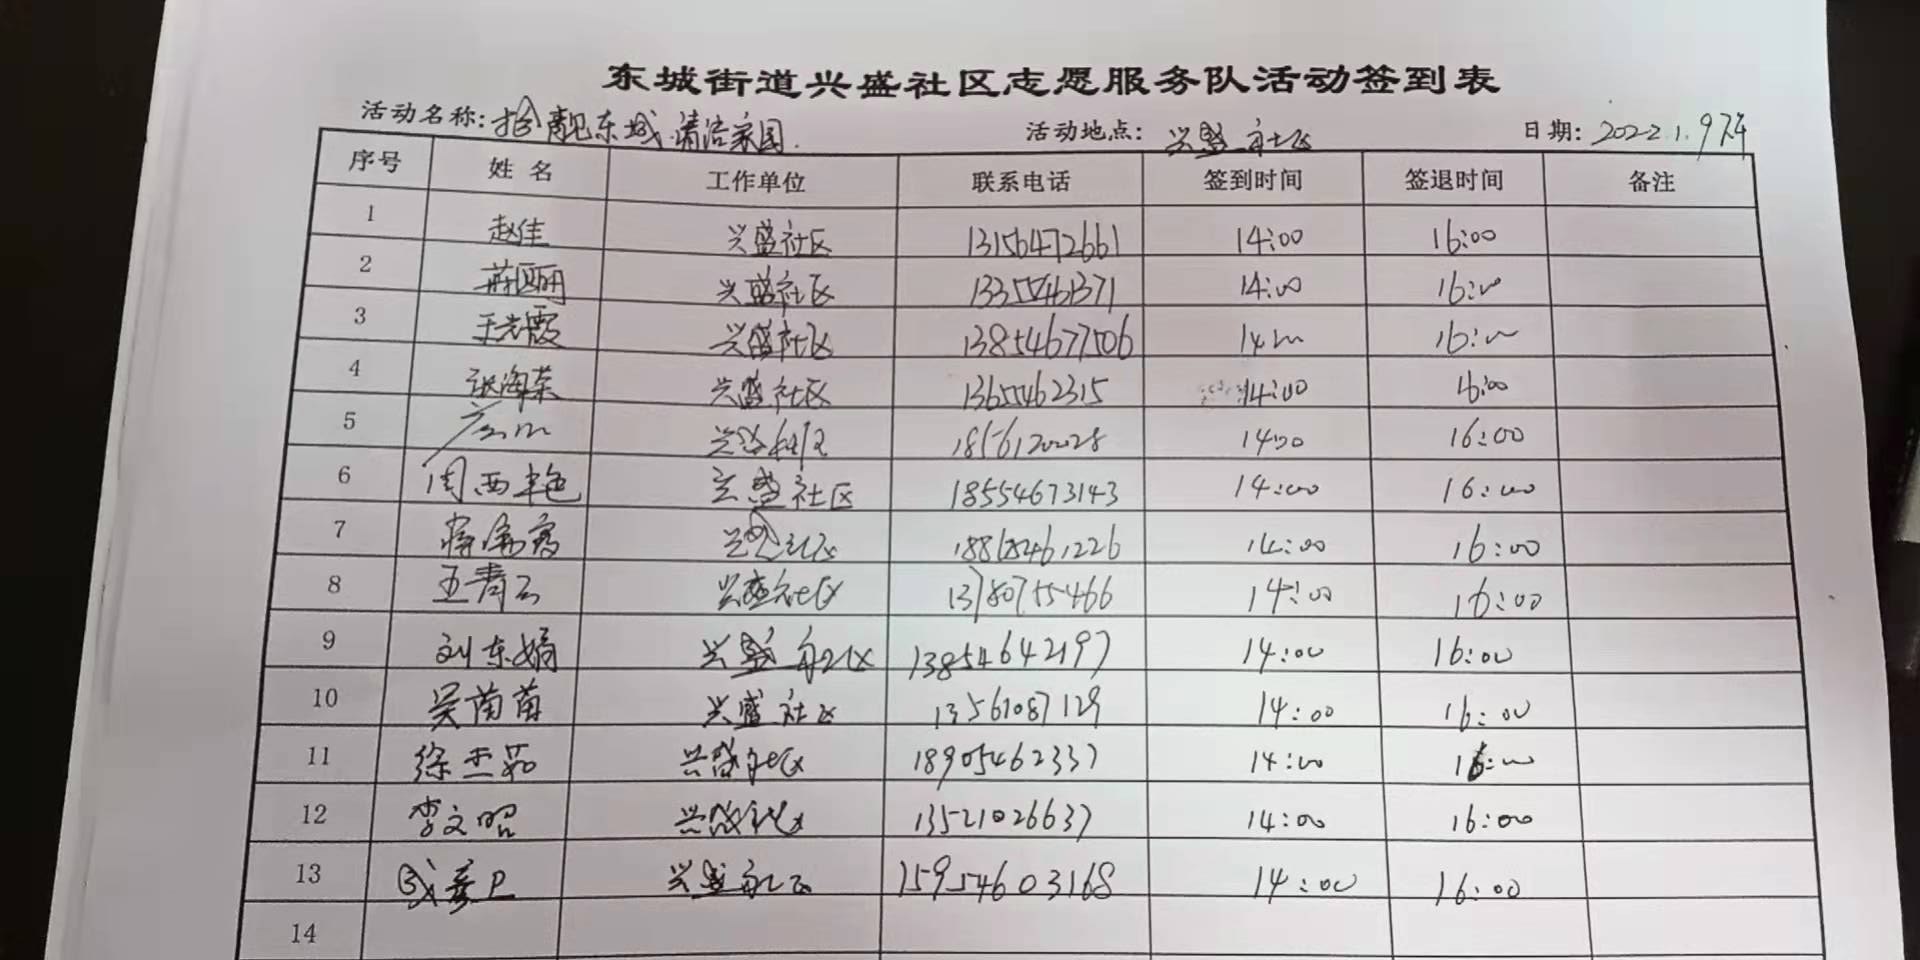 东城街道兴盛社区志愿服务队活动签到表
活动名称: 拾靓东城 清洁家园. 活动地点: 兴盛社区 日期: 2022.1.9下午
序号 姓名 工作单位 联系电话 签到时间 签退时间 备注
1 赵佳 兴盛社区 13156472661 14:00 16:00
2 兴盛社区 14:00 16:00
3 王志霞 兴盛社区 13854677506 14:00 16:00
4 张海荣 兴盛社区 1365462315 14:00 16:00
5 兴盛社区 14:00 16:00
6 周西艳 兴盛社区 18554673143 14:00 16:00
7 兴盛社区 14:00 16:00
8 王青云 兴盛社区 13780755466 14:00 16:00
9 刘东娟 兴盛社区 13854642197 14:00 16:00
10 吴苗苗 兴盛社区 13561087129 14:00 16:00
11 徐杰茹 兴盛社区 18905462337 14:00 16:00
12 李文昭 兴盛社区 13521026637 14:00 16:00
13 兴盛社区 15954603168 14:00 16:00
14